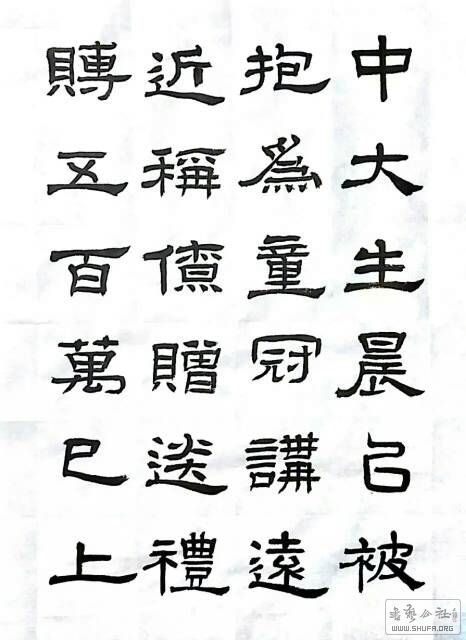 中大生晨已被
抱為童冠講遠
近稱贈送禮
賻五百萬已上
书艺公社
WWW.SHUFA.ORG